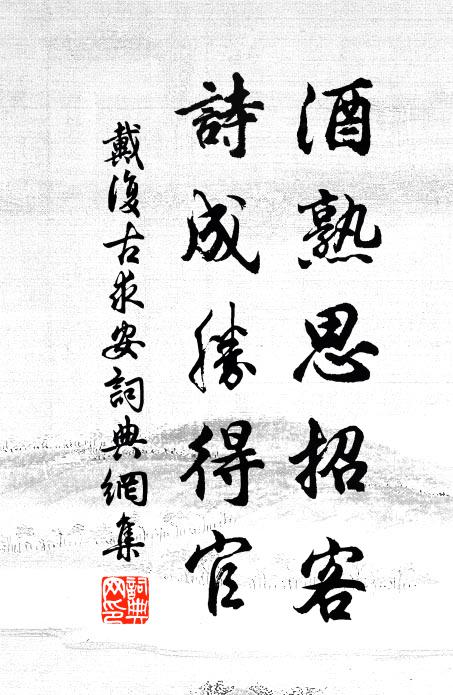 酒熟思招客
詩成勝得官
戴復古求安詞典網集
詞典網印